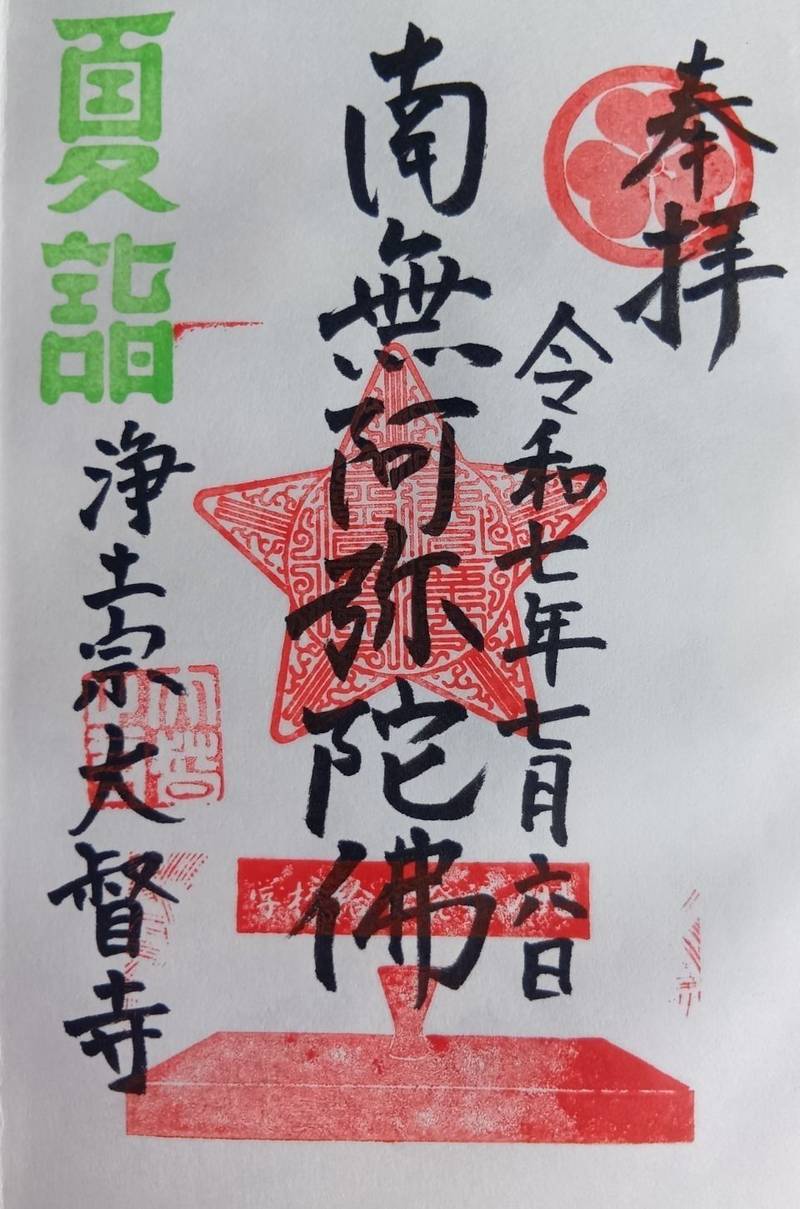 奉拝
令和七年七月六日
南無阿弥陀佛
夏詣
浄土宗大督寺